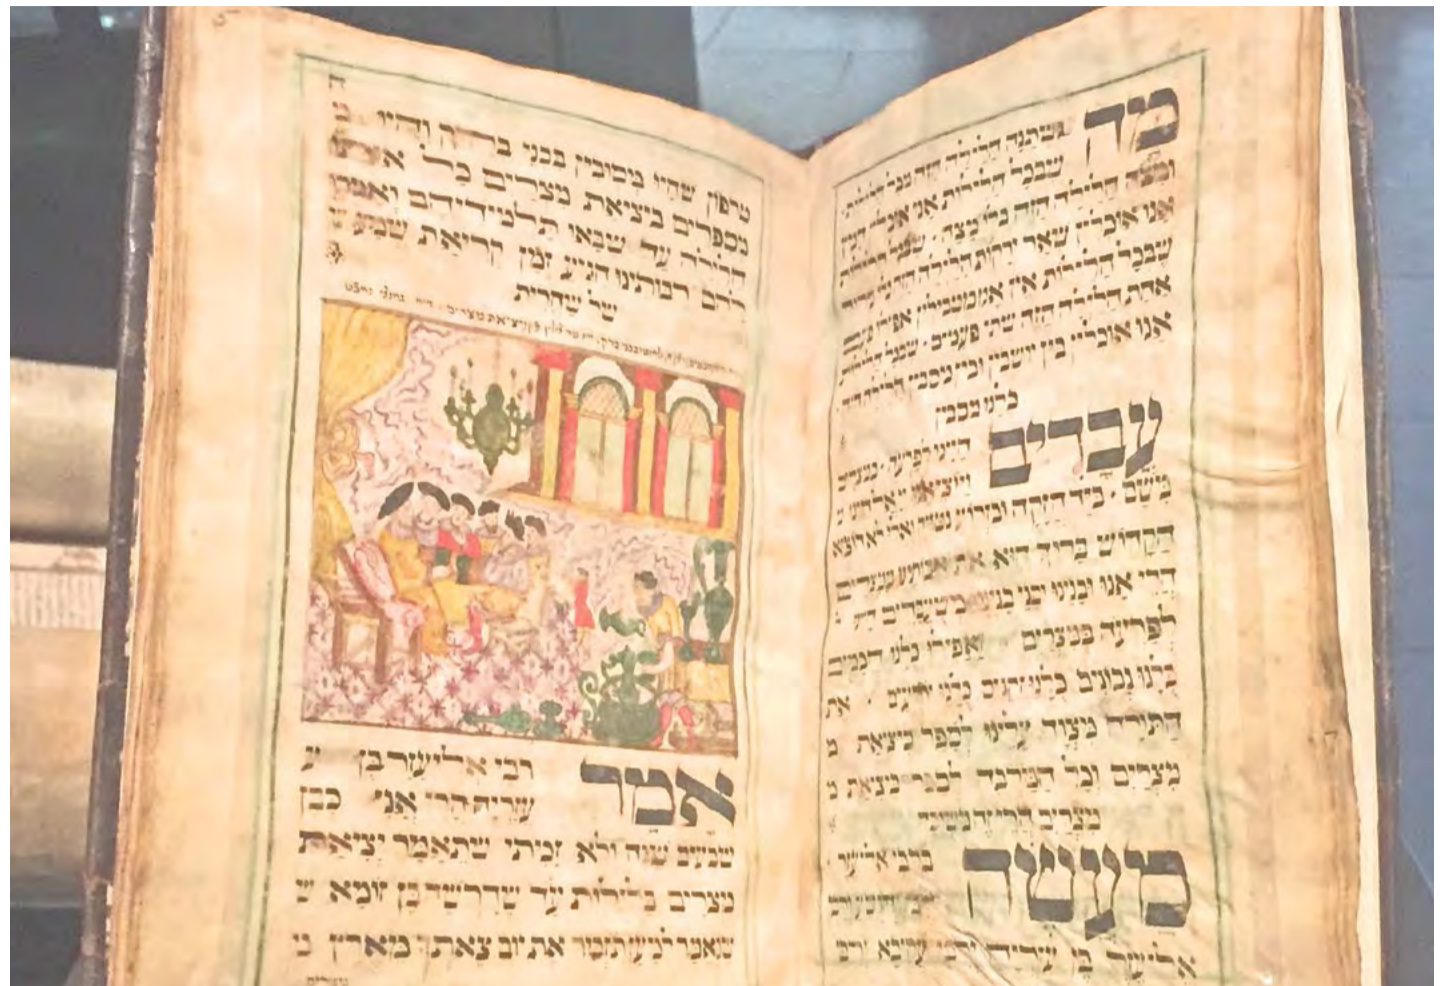 מה
נשתנה הלילה הזה מכל הלילות
שבכל הלילות אנו אוכלין חמץ
ומצה הלילה הזה כלו מצה שבכל הלילות
אנו אוכלין שאר ירקות הלילה הזה
שבכל הלילות אין אנו מטבילין אפילו פעם
אחת הלילה הזה שתי פעמים שבכל הלילות
אנו אוכלין בין יושבין ובין מסובין הלילה הזה
כלנו מסבין
עבדים
היינו לפרעה במצרים
ויוציאנו
משם ביד חזקה ובזרוע נטויה ואלו לא הוציא
הקדוש ברוך הוא את אבותינו ממצרים
הרי אנו ובנינו ובני בנינו משעבדים היינו
לפרעה במצרים ואפילו כלנו חכמים
כלנו נבונים כלנו זקנים כלנו יודעים את
התורה מצוה עלינו לספר ביציאת מ
מצרים וכל המרבה לספר ביציאת מ
מצרים הרי זה משובח
מעשה
ברבי אליעזר
ורבי יהושע ורבי
אלעזר בן עזריה ורבי עקיבא ורבי
טרפון שהיו מסובין בבני ברק והיו
מספרים ביציאת מצרים כל אותו
הלילה עד שבאו תלמידיהם ואמרו
להם רבותינו הגיע זמן קריאת שמע ש
של שחרית
אמר
רבי אליעזר בן ע
עזריה הרי אני כבן
שבעים שנה ולא זכיתי שתאמר יציאת
מצרים בלילות עד שדרשה בן זומא ש
שנאמר למען תזכר את יום צאתך מארץ מ
מצרים